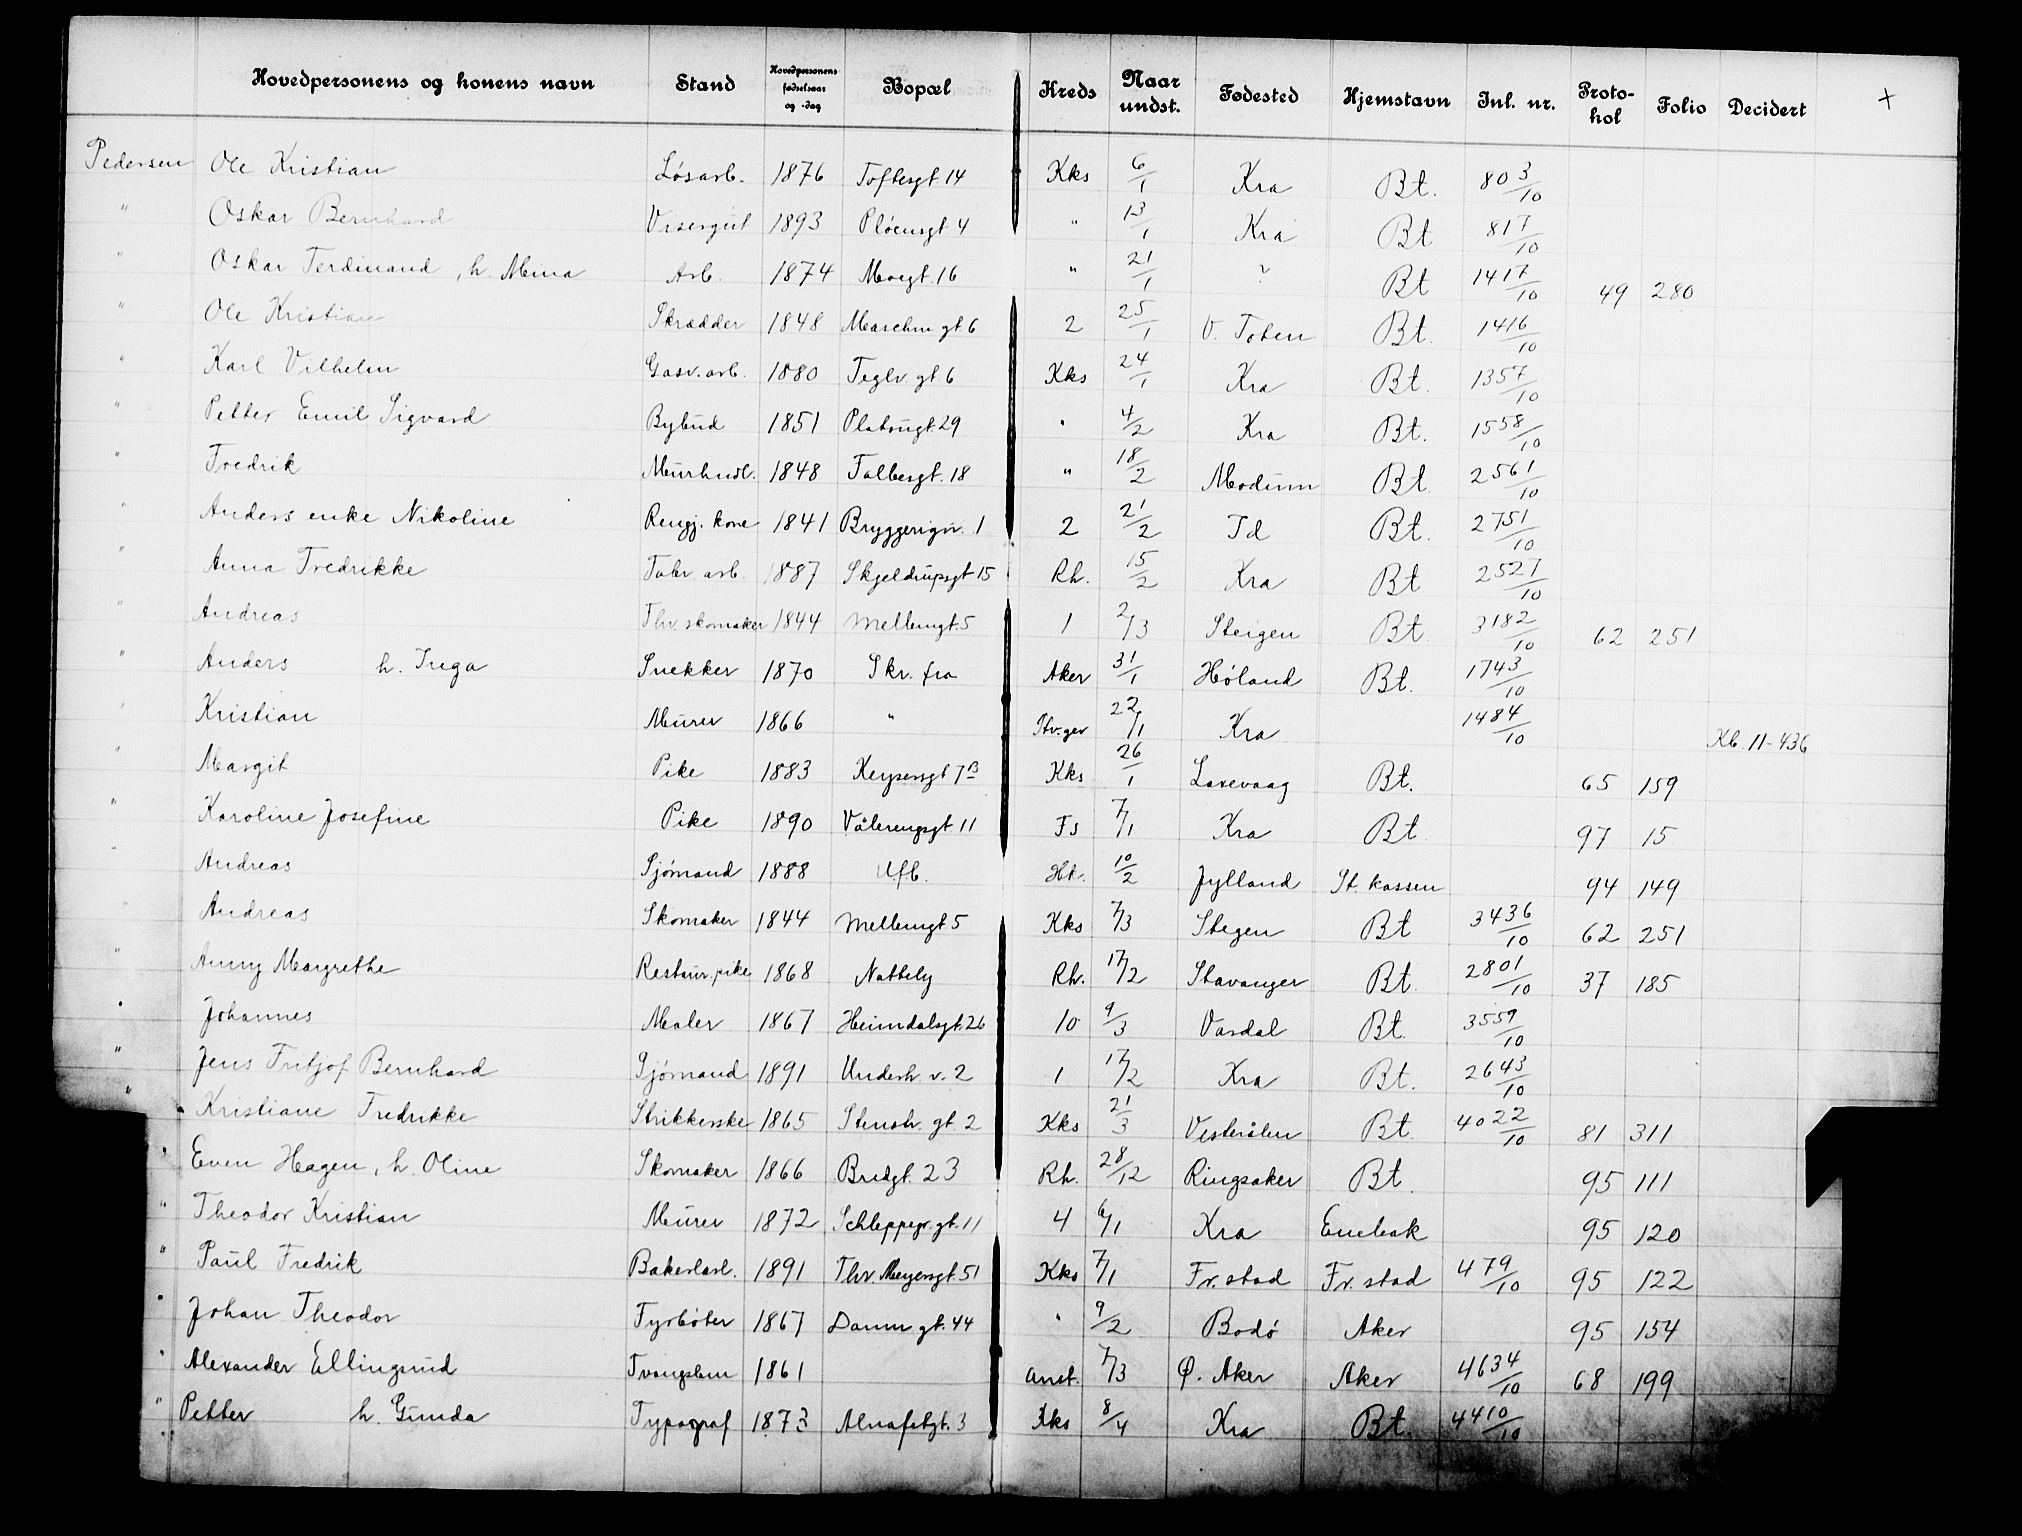 Hovedpersonens og konens navn Stand Hovedpersonens fødselsaar og -dag Bopæl Kreds Naar undst. Fødested Hjemstavn Inl. nr. Proto-kol Folio Decidert +
Pedersen Ole Kristian Løsarb. 1876 Toftesgt 14 Kks 6/1 Kra Bt. 803/10
" Oskar Bernhard Visergut 1893 Pløensgt 4 " 13/1 Kra Bt 817/10
" Oskar Ferdinand, h. Mina Arb. 1874 Moegt. 16 " 21/1 ? Bt 1417/10 49 280
" Ole Kristian Skrædder 1848 Maschm gt 6 2 25/1 V. Toten Bt. 1416/10
" Karl Vilhelm Gasv. arb. 1880 Teglv. gt 6 Kks 24/1 Kra Bt. 1357/10
" Petter Emil Sigvard Bybud 1851 Platougt. 29 " 4/2 Kra Bt. 1558/10
" Fredrik Murhndl. 1848 Falbesgt. 18 " 18/2 Modum Bt. 2561/10
" Anders enke Nikoline Rengj. kone 1841 Bryggerigv. 1 2 21/2 Td Bt. 2751/10
" Anna Fredrikke Fabr. arb. 1887 Skjeldrupsgt 15 Rh. 15/2 Kra Bt 2521/10
" Andreas Thv. skomaker 1844 Mellemgt. 5 1 2/3 Steigen Bt. 3182/10 62 251
" Anders h. Inga Snekker 1870 Skr. fra Aker 31/1 Høland Bt. 1743/10
" Kristian Murer 1866 " Stv.ger 22/1 Kra 1484/10 Kb. 11-436
" Margit Pike 1883 Keysersgt 7B Kks 26/1 Laxevaag Bt. 65 159
" Karoline Josefine Pike 1890 Vålerengsgt 11 Fs 7/1 Kra Bt. 97 15
" Andreas Sjømand 1888 Ufb. Hk. 10/2 Jylland St. kassen 94 149
" Andreas Skomaker 1844 Mellemgt 5 Kks 7/3 Stegen Bt 3436/10 62 251
" Anny Margrethe Restaur. pike 1868 Nattely Rh. 17/2 Stavanger Bt. 2801/10 37 185
" Johannes Maler 1867 Heimdalsgt. 26 10 9/3 Vardal Bt. 3559/10
" Jens Fritjof Bernhard Sjømand 1891 Underh. v. 2 1 17/2 Kra Bt. 2643/10
" Kristiane Fredrikke Strikkerske 1865 Stenstr. gt. 2 Kks 21/3 Vesterålen Bt. 4022/10 81 311
" Even Hagen, h. Oline Skomaker 1866 Bredgt. 23 Rh. 28/12 Ringsaker Bt. 95 111
" Theodor Kristian Murer 1872 Schleppegr. gt. 11 4 6/1 Kra Enebak 95 120
" Paul Fredrik Bakerlærl. 1891 Thv. Meyersgt. 51 Kks 7/1 Fr. stad Fr. stad 479/10 95 122
" Johan Theodor Fyrbøter 1867 Damm gt. 44 " 9/2 Bodø Aker 95 154
" Alexander Ellingsrud Tvangslem 1861 Anst. 7/3 Ø. Aker Aker 4634/10 68 199
" Petter h. Gunda Typograf 1873 Alnafetgt. 3 Kks 8/4 Kra Bt. 4410/10